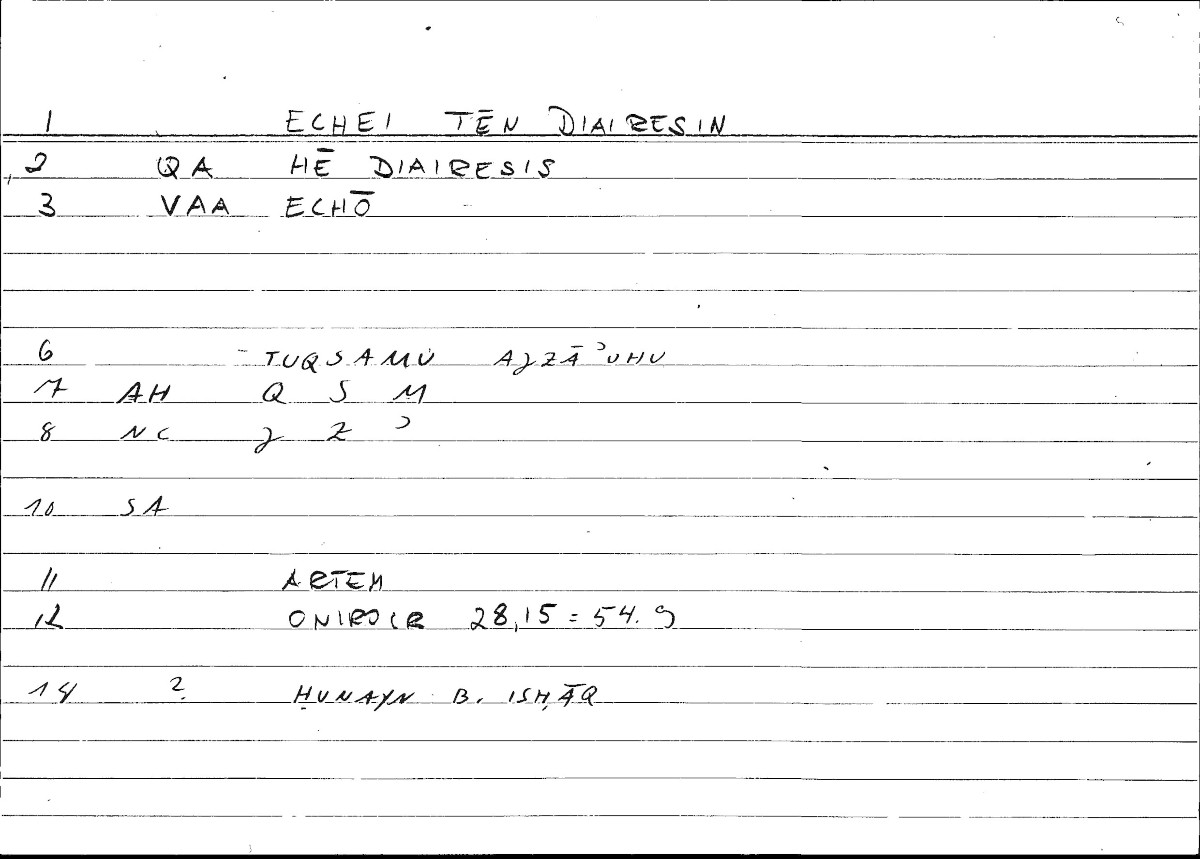 1 ECHEI TĒN DIAIRESIN
2 QA HĒ DIAIRESIS
3 VAA ECHŌ
6 TUQSAMU AJZĀʾUHU
7 AH Q S M
8 NC J Z ʾ
10 SA
11 ARTEM
12 ONIROCR 28,15 = 54.9
14 ? ḤUNAYN B. ISḤĀQ